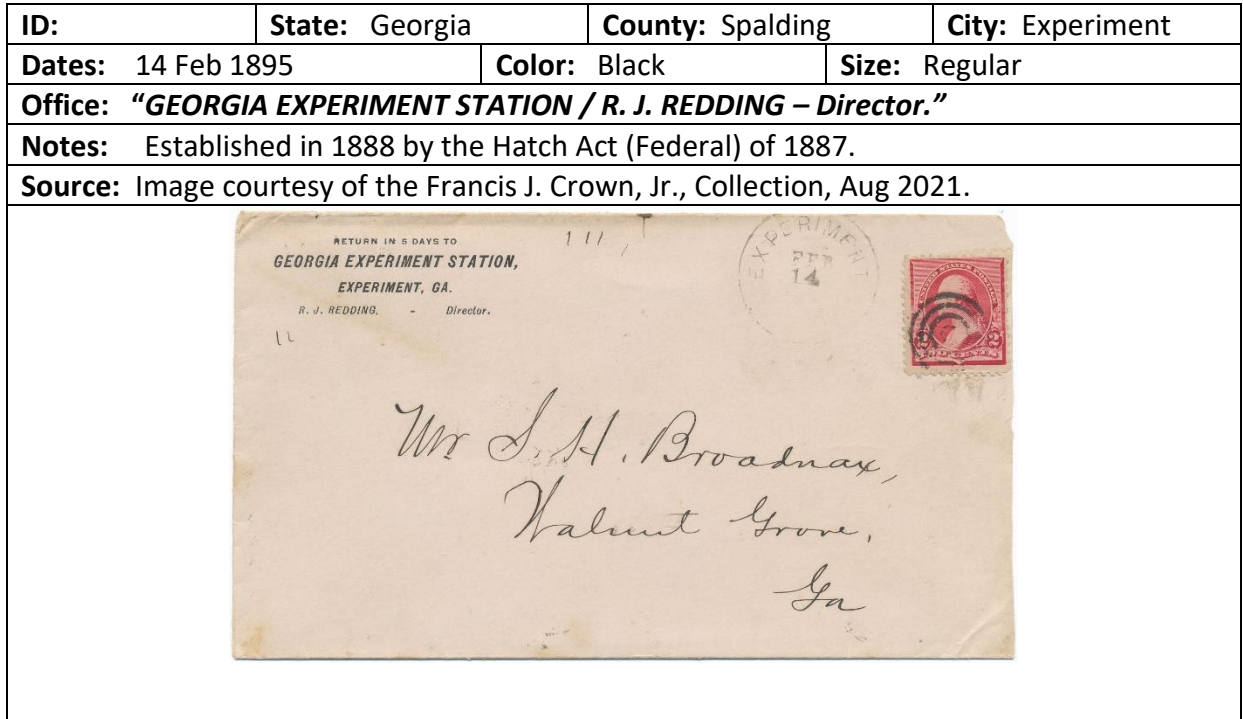 ID: State: Georgia County: Spalding City: Experiment
Dates: 14 Feb 1895 Color: Black Size: Regular
Office: “GEORGIA EXPERIMENT STATION / R. J. REDDING – Director.”
Notes: Established in 1888 by the Hatch Act (Federal) of 1887.
Source: Image courtesy of the Francis J. Crown, Jr., Collection, Aug 2021.
RETURN IN 5 DAYS TO
GEORGIA EXPERIMENT STATION,
EXPERIMENT, GA.
R. J. REDDING, - Director.
EXPERIMENT
FEB
14
UNITED STATES POSTAGE
2 2
TWO CENTS
Mr S. H. Broadnax,
Walnut Grove,
Ga